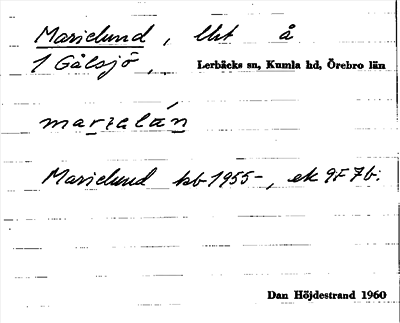 Marielund, lht å
1 Gålsjö, Lerbäcks sn, Kumla hd, Örebro län
marielún
Marielund kb 1955-, ek 9F7b.
Dan Höjdestrand 1960